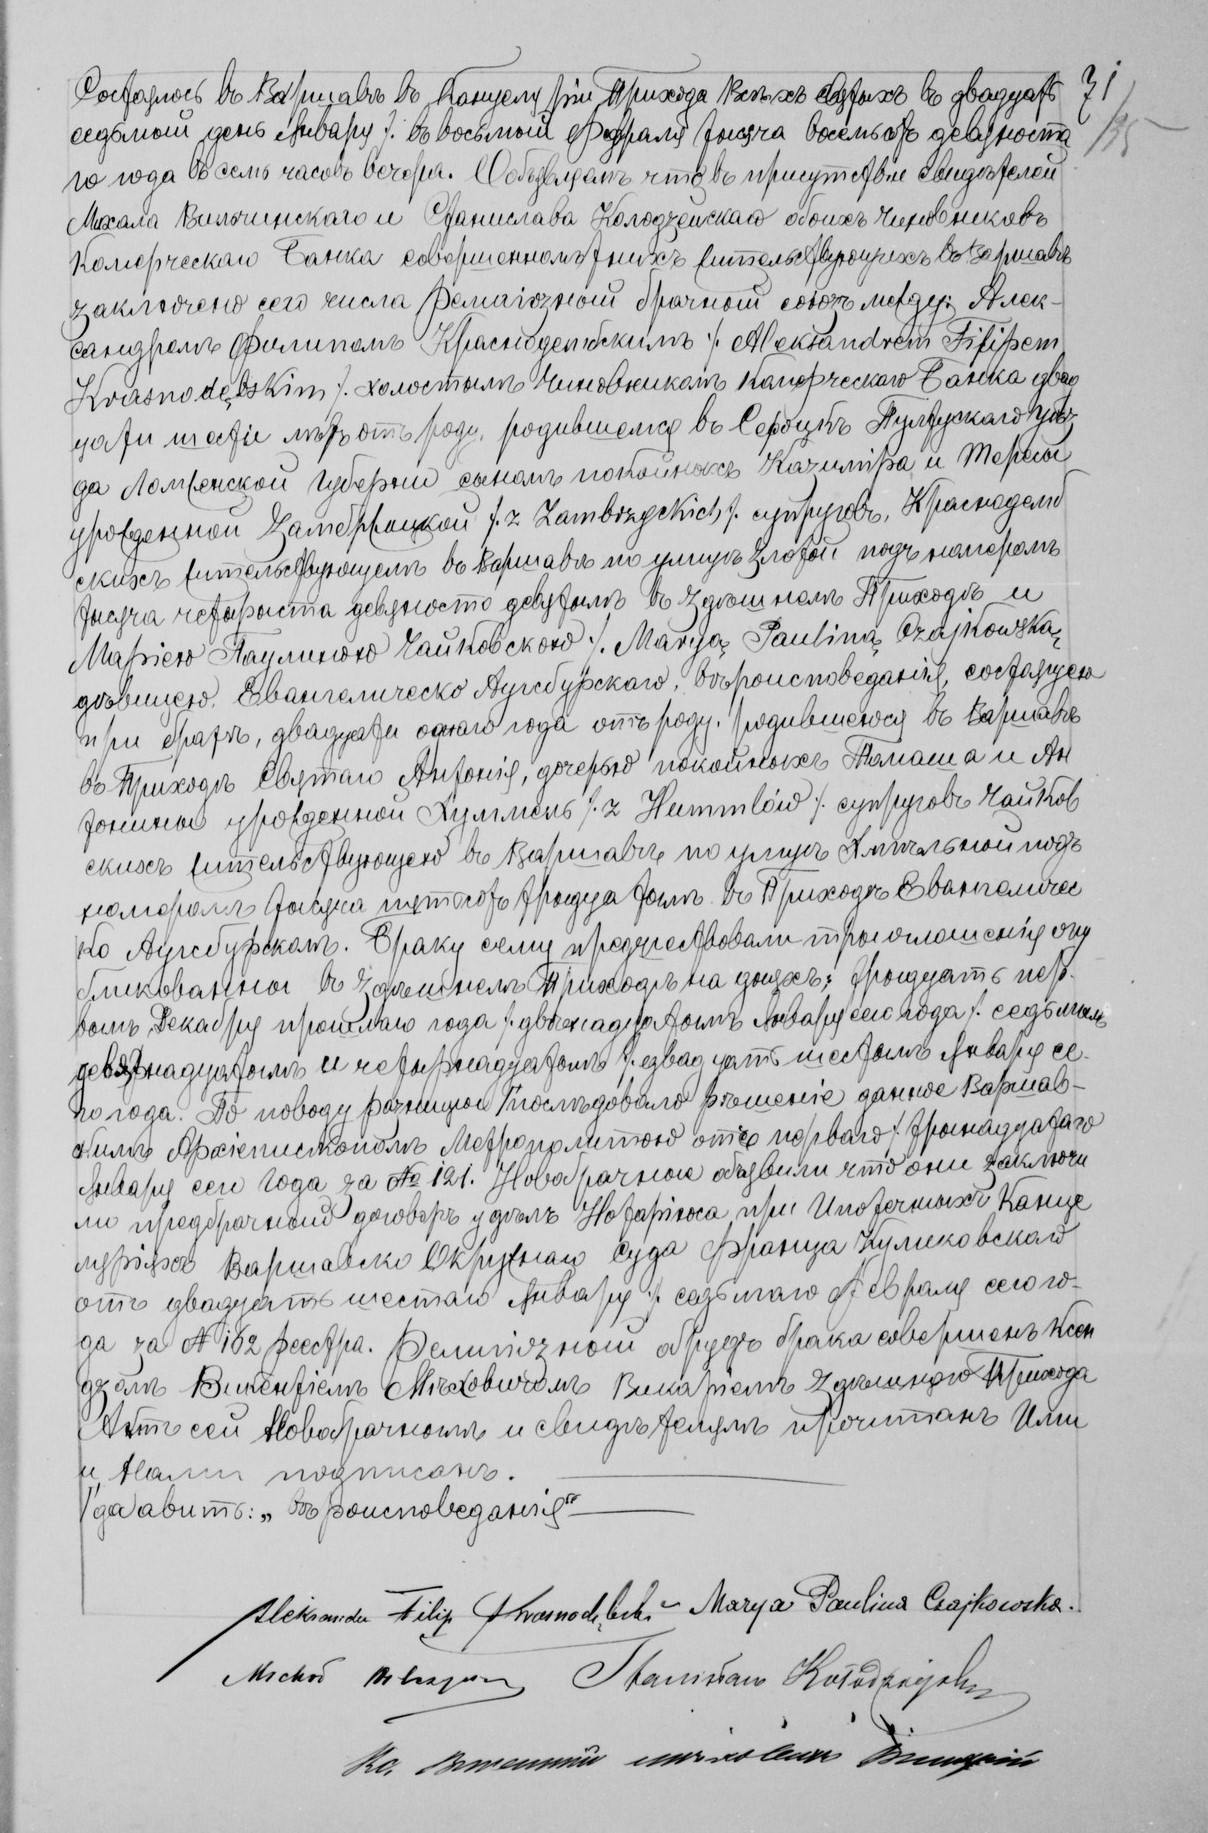 71
/35
Состоялось въ Варшавѣ въ Канцеляріи Прихода Всѣхъ Святыхъ въ двадцать
седьмой день Января /. въ восьмой Февраля тысяча восемьсотъ девяноста
го года въ семь часовъ вечера. Объявляемъ что въ присутствіи свидѣтелей
Михала Вильчинскаго и Станислава Колодзейскаго обоихъ чиновниковъ
Комерческаго Банка совершеннолѣтнихъ жительствующихъ въ Варшавѣ
заключенъ сего числа религіозный брачный союзъ между: Алек-
сандромъ Филипомъ Краснодембскимъ /. Aleksandrem Filipem
Krasnodębskim /. холостымъ чиновникомъ Комерческаго Банка двад
цати шести лѣтъ отъ роду, родившемся въ Сероцкѣ Пултускаго Уѣз-
да Ломженской Губерніи сыномъ покойныхъ Казимѣра и Терезы
урожденной Замбржицкой /. z Zambrzyckich /. супруговъ, Краснодемб
скихъ жительствующемъ въ Варшавѣ по улицѣ Златой подъ номеромъ
тысяча четыреста девяносто девятымъ въ здѣшнемъ Приходѣ и
Маріею Паулиною Чайковскою /. Maryą Pauliną Czajkowską
дѣвицею, Евангелическо Аугсбурскаго, вѣроисповеданія, состоящею
при братѣ, двадцати одного года отъ роду, родившеюся въ Варшавѣ
въ Приходѣ Святаго Антонія, дочерью покойныхъ Томаша и Ан
тонины урожденной Хуммель /. z Hummlów /. супруговъ Чайков
скихъ жительствующею въ Варшавѣ по улицѣ Хмѣльной подъ
номеромъ тысяча пятьсотъ тридцатымъ въ Приходѣ Евангеличес
ко Аугсбурскомъ. Браку сему предшествовали три оглашенія опу
бликованныя въ здѣшнемъ Приходѣ на дняхъ: тридцать пер-
вомъ Декабря прошлаго года /. двѣнадцатомъ Января сего года /. седьмомъ
девятнадцатомъ и четырнадцатомъ /. двадцать шестомъ Января се-
го года. По поводу разницы послѣдовало рѣшеніе данное Варшав-
скимъ Архіепископомъ Метрополитою отъ перваго /. тринадцатаго
Января сего года за № 121. Новобрачные объявили что они заключи
ли предбрачный договоръ у дѣлъ Нотаріюса при Ипотечныхъ Канце
ляріяхъ Варшавско Окружнаго Суда Франца Куликовскаго
отъ двадцать шестаго Января /. седьмаго Февраля сего го-
да за № 162 реестра. Религіозный обрядъ брака совершенъ Ксен
дземъ Викентіемъ Мѣховичомъ Викаріемъ здѣшняго Прихода
Актъ сей Новобрачнымъ и свидѣтелямъ прочитанъ Ими
и Нами подписанъ.
добавить: „вѣроисповеданія"
Aleksander Filip Krasnodębski Marya Paulina Czajkowska.
Michał Stanisław Kołodziejski
Кс.